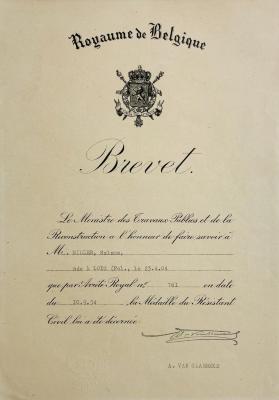 Royaume de Belgique
Brevet.
Le Ministre des Travaux Publics et de la
Reconstruction a l'honneur de faire savoir à
M
née à LODZ (Pol., le 23.4.04
que par Arrêté Royal nº 781 en date
du 10.9.54 la Médaille du Résistant
Civil lui a été décernée
A. VAN GLABBEKE